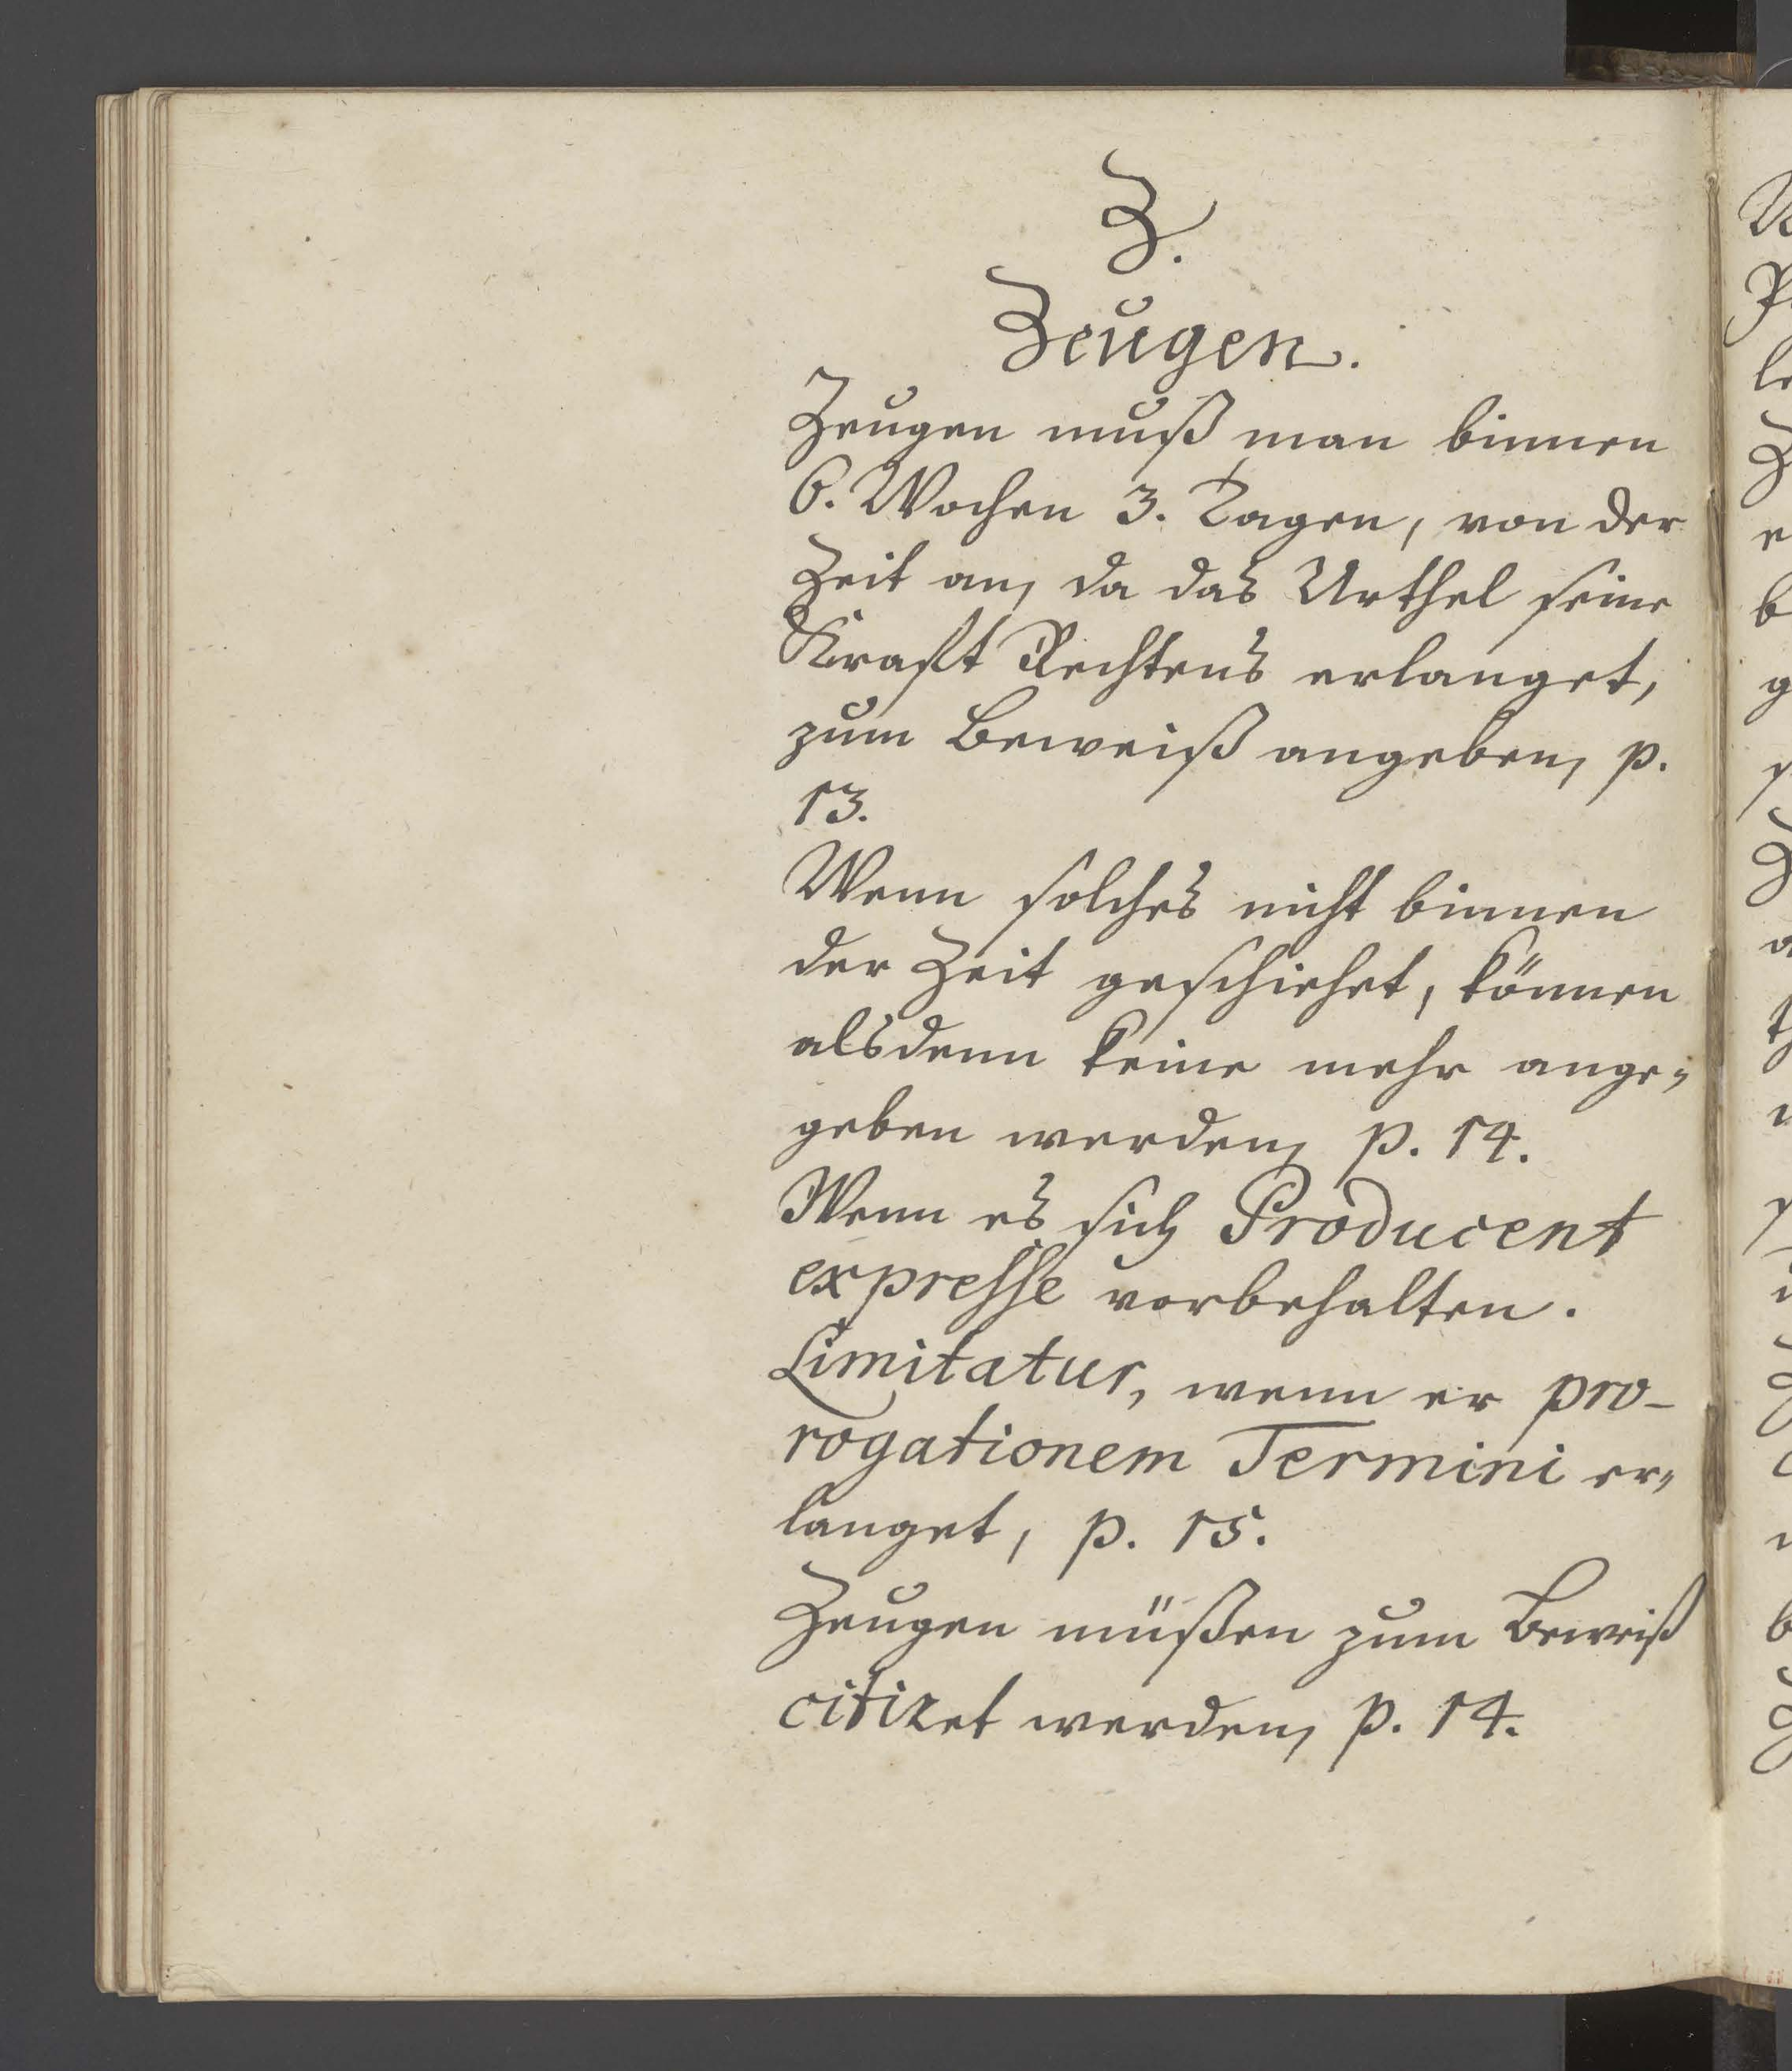 Z.
Zeugen.
Zeugen muß man binnen
6. Wochen 3. Tagen, von der
Zeit an, da das Urthel seine
Krafft Rechtens erlanget,
zum Beweiß angeben, p.
13.
Wenn solches nicht binnen
der Zeit geschiehet, können
alsdenn keine mehr ange-
geben werden, p. 14.
Wenn es sich Producent
expresse vorbehalten.
Limitatur, wenn er pro-
rogationem Termini er-
langet, p. 15.
Zeugen müßen zum Beweiß
citiret werden, p. 14.